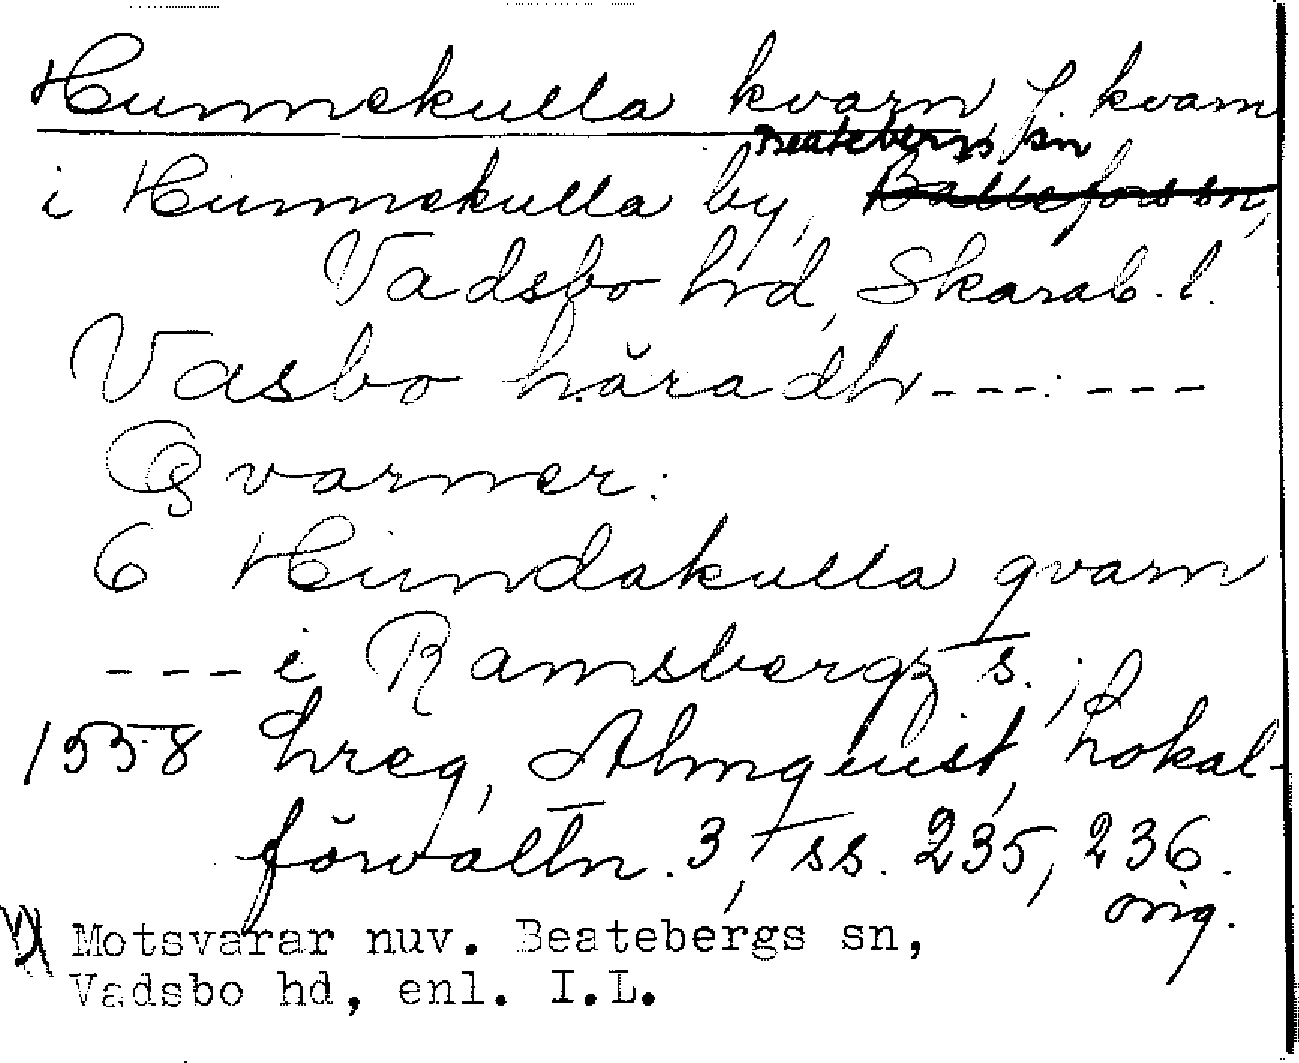 Hunnekulla kvarn, f. kvarn
Beatebergs sn
i Hunnekulla by, Bällefors sn,
Vadsbo hd, Skarab. l.
Vasbo häradh --- ---
Qvarner:
6 Hundakulla qvarn
--- i Ramsbergz s.;
1558 hreg, Almquist, Lokal-
förvaltn. 3, ss. 235, 236.
orig.
1) Motsvarar nuv. Beatebergs sn,
Vadsbo hd, enl. I.L.